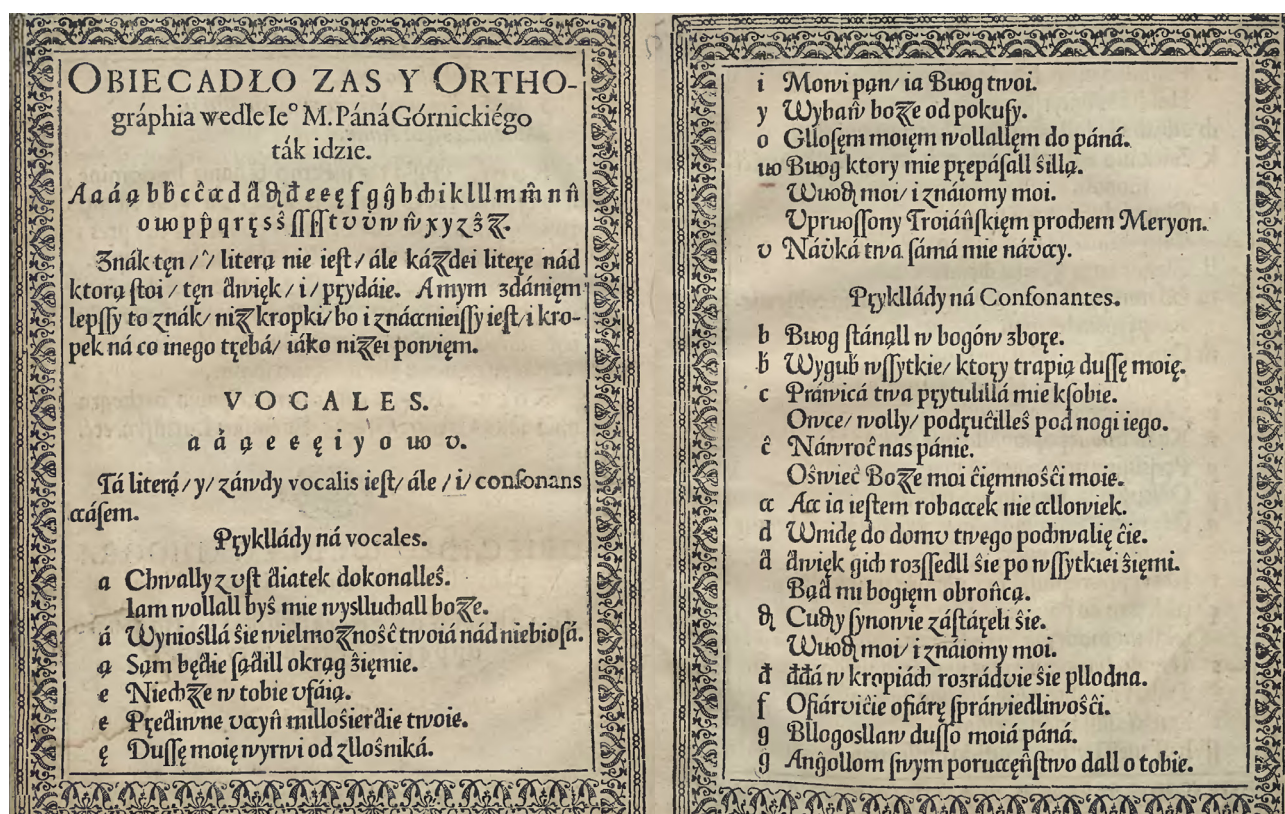 OBIECADŁO ZAS Y ORTHO-
gráphia wedle Ieº M. Páná Górnickiégo
ták idzie.
o uo p p̂ q r ꞅ̨ s ŝ ſſ ſſ ſt v v̂ w ŵ x y z ẑ ꝛ.
Znák tęn / ̂ / literą nie ieſt / ále káżdei literę nád
ktorą ſtoi / tęn d̂więk / i / pꞅ̨ydáie. A mym zdánięm
lepſſy to znák / niż kropki / bo i znácznieiſſy ieſt / i kro-
pek ná co inego tꞅ̨ebá / iáko niżei powięm.
VOCALES.
a á ą e e ę i y o uo v.
Tá literá / y / záwdy vocalis ieſt / ále / i / conſonans
czáſem.
Pꞅ̨ykllády ná vocales.
a Chwally z vſt d̂iatek dokonalleŝ.
Iam wollall byŝ mie wysłluchall boże.
á Wynioŝllá ŝie wielmożnoŝĉ twoiá nád niebioſá.
ą Sąm będ̂ie ſąd̂ill okrąg ẑięmie.
e Niechże w tobie vfáią.
e Pꞅ̨ed̂iwne vczyn̂ milloŝierd̂ie twoie.
ę Duſſę moię wyrwi od zlloŝniká.
i Mowi pąn / ia Buog twoi.
y Wyban̂ boże od pokuſy.
o Glloſęm moięm wollallęm do páná.
uo Buog ktory mie pꞅ̨epáſall ŝillą.
Wuodz moi / i znáiomy moi.
Vpruoſſony Troián̂ſkięm prochem Meryon.
v Náv̂ká twa ſámá mie náv̂czy.
Pꞅ̨ykllády ná Conſonantes.
b Buog ſtánąll w bogów zboꞅ̨e.
b̂ Wygub̂ wſſytkie / ktoꞅ̨y trapią duſſę moię.
c Práwicá twa pꞅ̨ytulillá mie kſobie.
Owce / wolly / podꞅ̨uĉilleŝ pod nogi iego.
ĉ Náwroĉ nas pánie.
Oŝwieĉ Boże moi ĉięmnoŝĉi moie.
cz Acz ia ieſtem robaczek nie czllowiek.
d Wnidę do domv twego pochwalię ĉie.
d̂ d̂więk gich rozſſedll ŝie po wſſytkiei ẑięmi.
Bąd̂ mi bogięm obron̂cą.
dz Cudzy ſynowie záſtáꞅ̨eli ŝie.
Wuodz moi / i znáiomy moi.
đ đđá w kropiách rozrádvie ŝie pllodna.
f Ofiárviĉie ofiárę ſpráwiedliwoŝĉi.
g Bllogosllaw duſſo moiá páná.
ĝ Anĝollom ſwym poruczęn̂ſtwo dall o tobie.